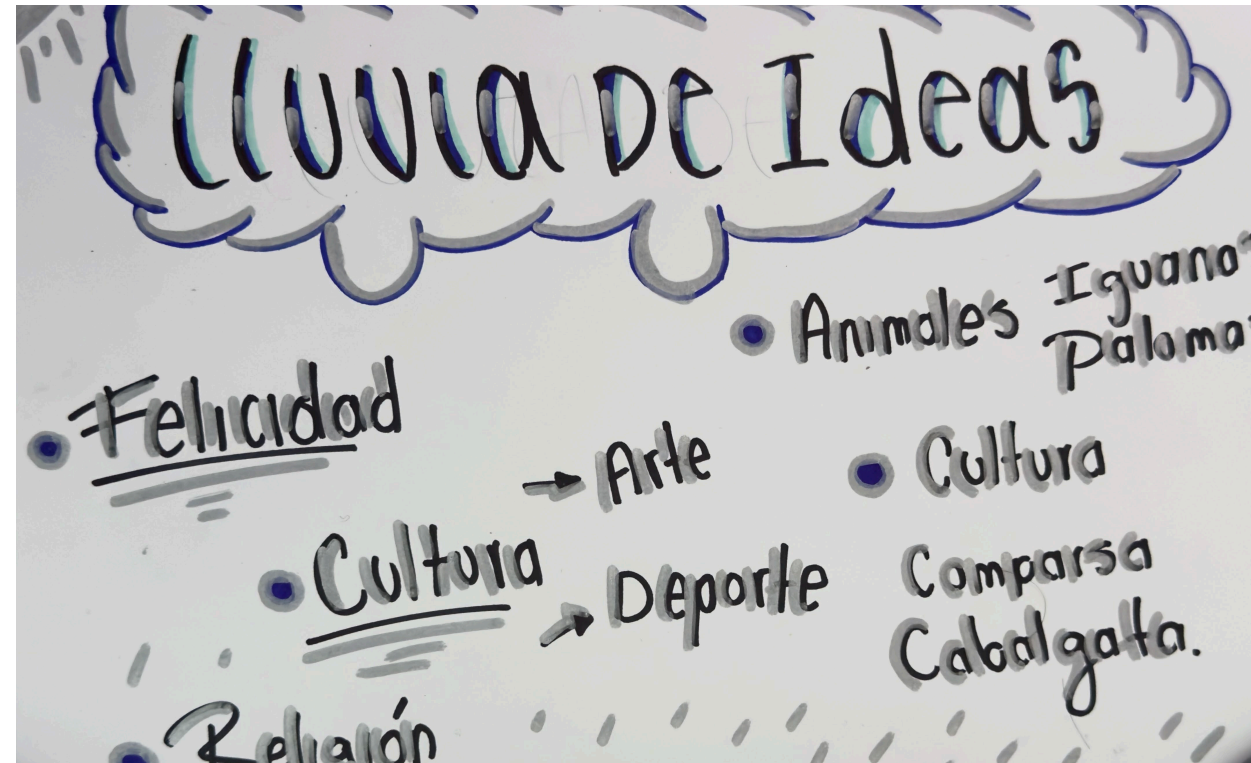 Lluvia De Ideas
Animales
Iguana
Paloma
Felicidad
Arte
Cultura
Cultura
Deporte
Comparsa
Cabalgata.
Religión